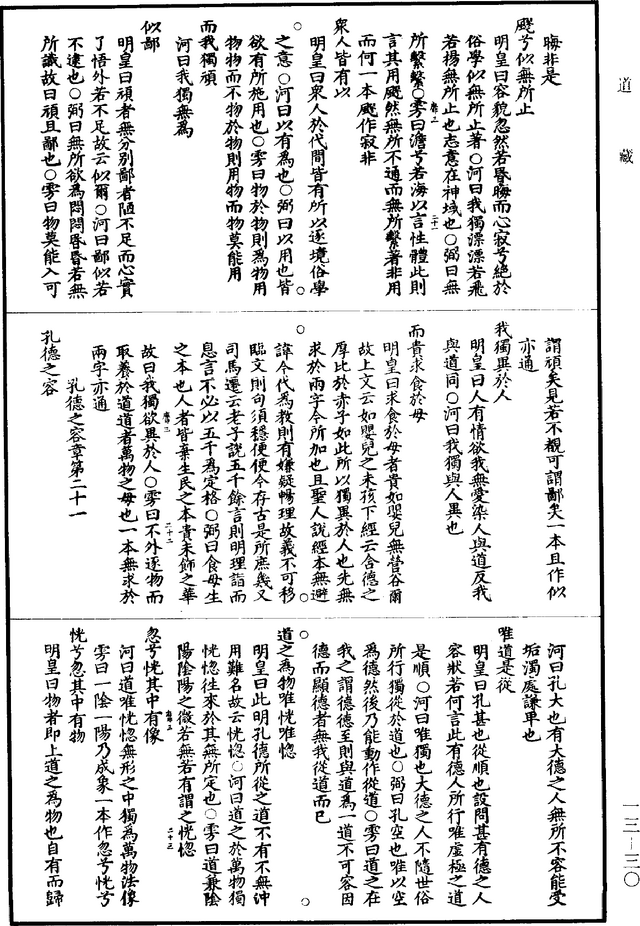 道藏
晦非是
飂兮似無所止
明皇曰容貌忽然若昏晦而心寂兮絕於
俗學似無所止著○河曰我獨漂漂若飛
若揚無所止也志意在神域也○弼曰無
所繫縶○雱曰澹兮若海以言性體此則
言其用飂然無所不通而無所繫著非用
而何一本飂作寂非
衆人皆有以
明皇曰衆人於代間皆有所以逐境俗學
之意○河曰以有為也○弼曰以用也皆
欲有所施用也○雱曰物於物則為物用
物物而不物於物則用物而物莫能用
而我獨頑
河曰我獨無為
似鄙
明皇曰頑者無分別鄙者陋不足而心實
了悟外若不足故云似爾○河曰鄙似若
不逮也○弼曰無所欲為悶悶昏昏若無
所識故曰頑且鄙也○雱曰物莫能入可
謂頑矣見若不覩可謂鄙矣一本且作似
亦通
我獨異於人
明皇曰人有情欲我無愛染人與道反我
與道同○河曰我獨與人異也
而貴求食於母
明皇曰求食於母者貴如嬰兒無營谷爾
故上文云如嬰兒之未孩下經云含德之
厚比於赤子如此所以獨異於人也先無
求於兩字今所加也且聖人說經本無避
諱今代為教則有嫌疑暢理故義不可移
臨文則句須穩便便今存古是所庶幾又
司馬遷云老子說五千餘言則明理詣而
息言不必以五千為定格○弼曰食母生
之本也人者皆棄生民之本貴末飾之華
故曰我獨欲異於人○雱曰不外逐物而
取養於道道者萬物之母也一本無求於
兩字亦通
孔德之容章第二十一
孔德之容
河曰孔大也有大德之人無所不容能受
垢濁處謙卑也
唯道是從
明皇曰孔甚也從順也設問甚有德之人
容狀若何言此有德人所行唯虛極之道
是順○河曰唯獨也大德之人不隨世俗
所行獨從於道也○弼曰孔空也唯以空
為德然後乃能動作從道○雱曰道之在
我之謂德德至則與道為一道不可容因
德而顯德者無我從道而已
道之為物唯恍唯惚
明皇曰此明孔德所從之道不有不無沖
用難名故云恍惚○河曰道之於萬物獨
恍惚往來於其無所定也○雱曰道兼陰
陽陰陽之微若無若有謂之恍惚
忽兮恍其中有像
河曰道唯恍惚無形之中獨為萬物法像
雱曰一陰一陽乃成象一本作忽兮恍兮
恍兮忽其中有物
明皇曰物者即上道之為物也自有而歸
一三—三〇